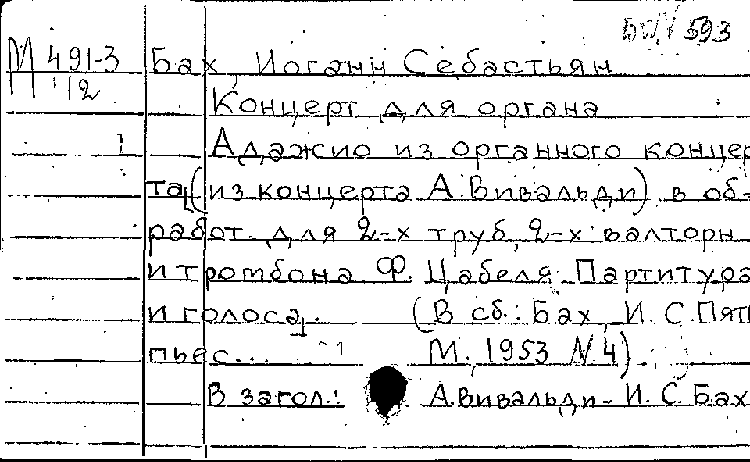 593
М 491-3 Бах, Иоганн Себастьян
12
Концерт для органа
1 Адажио из органного концер
та (из концерта А. Вивальди) в об-
работ. для 2-х труб, 2-х валторн
и тромбона Ф. Цабеля. Партитура
и голоса. (В сб.: Бах, И. С. Пять
пьес... М., 1953 N. 4).
В загол.: А. Вивальди - И. С. Бах